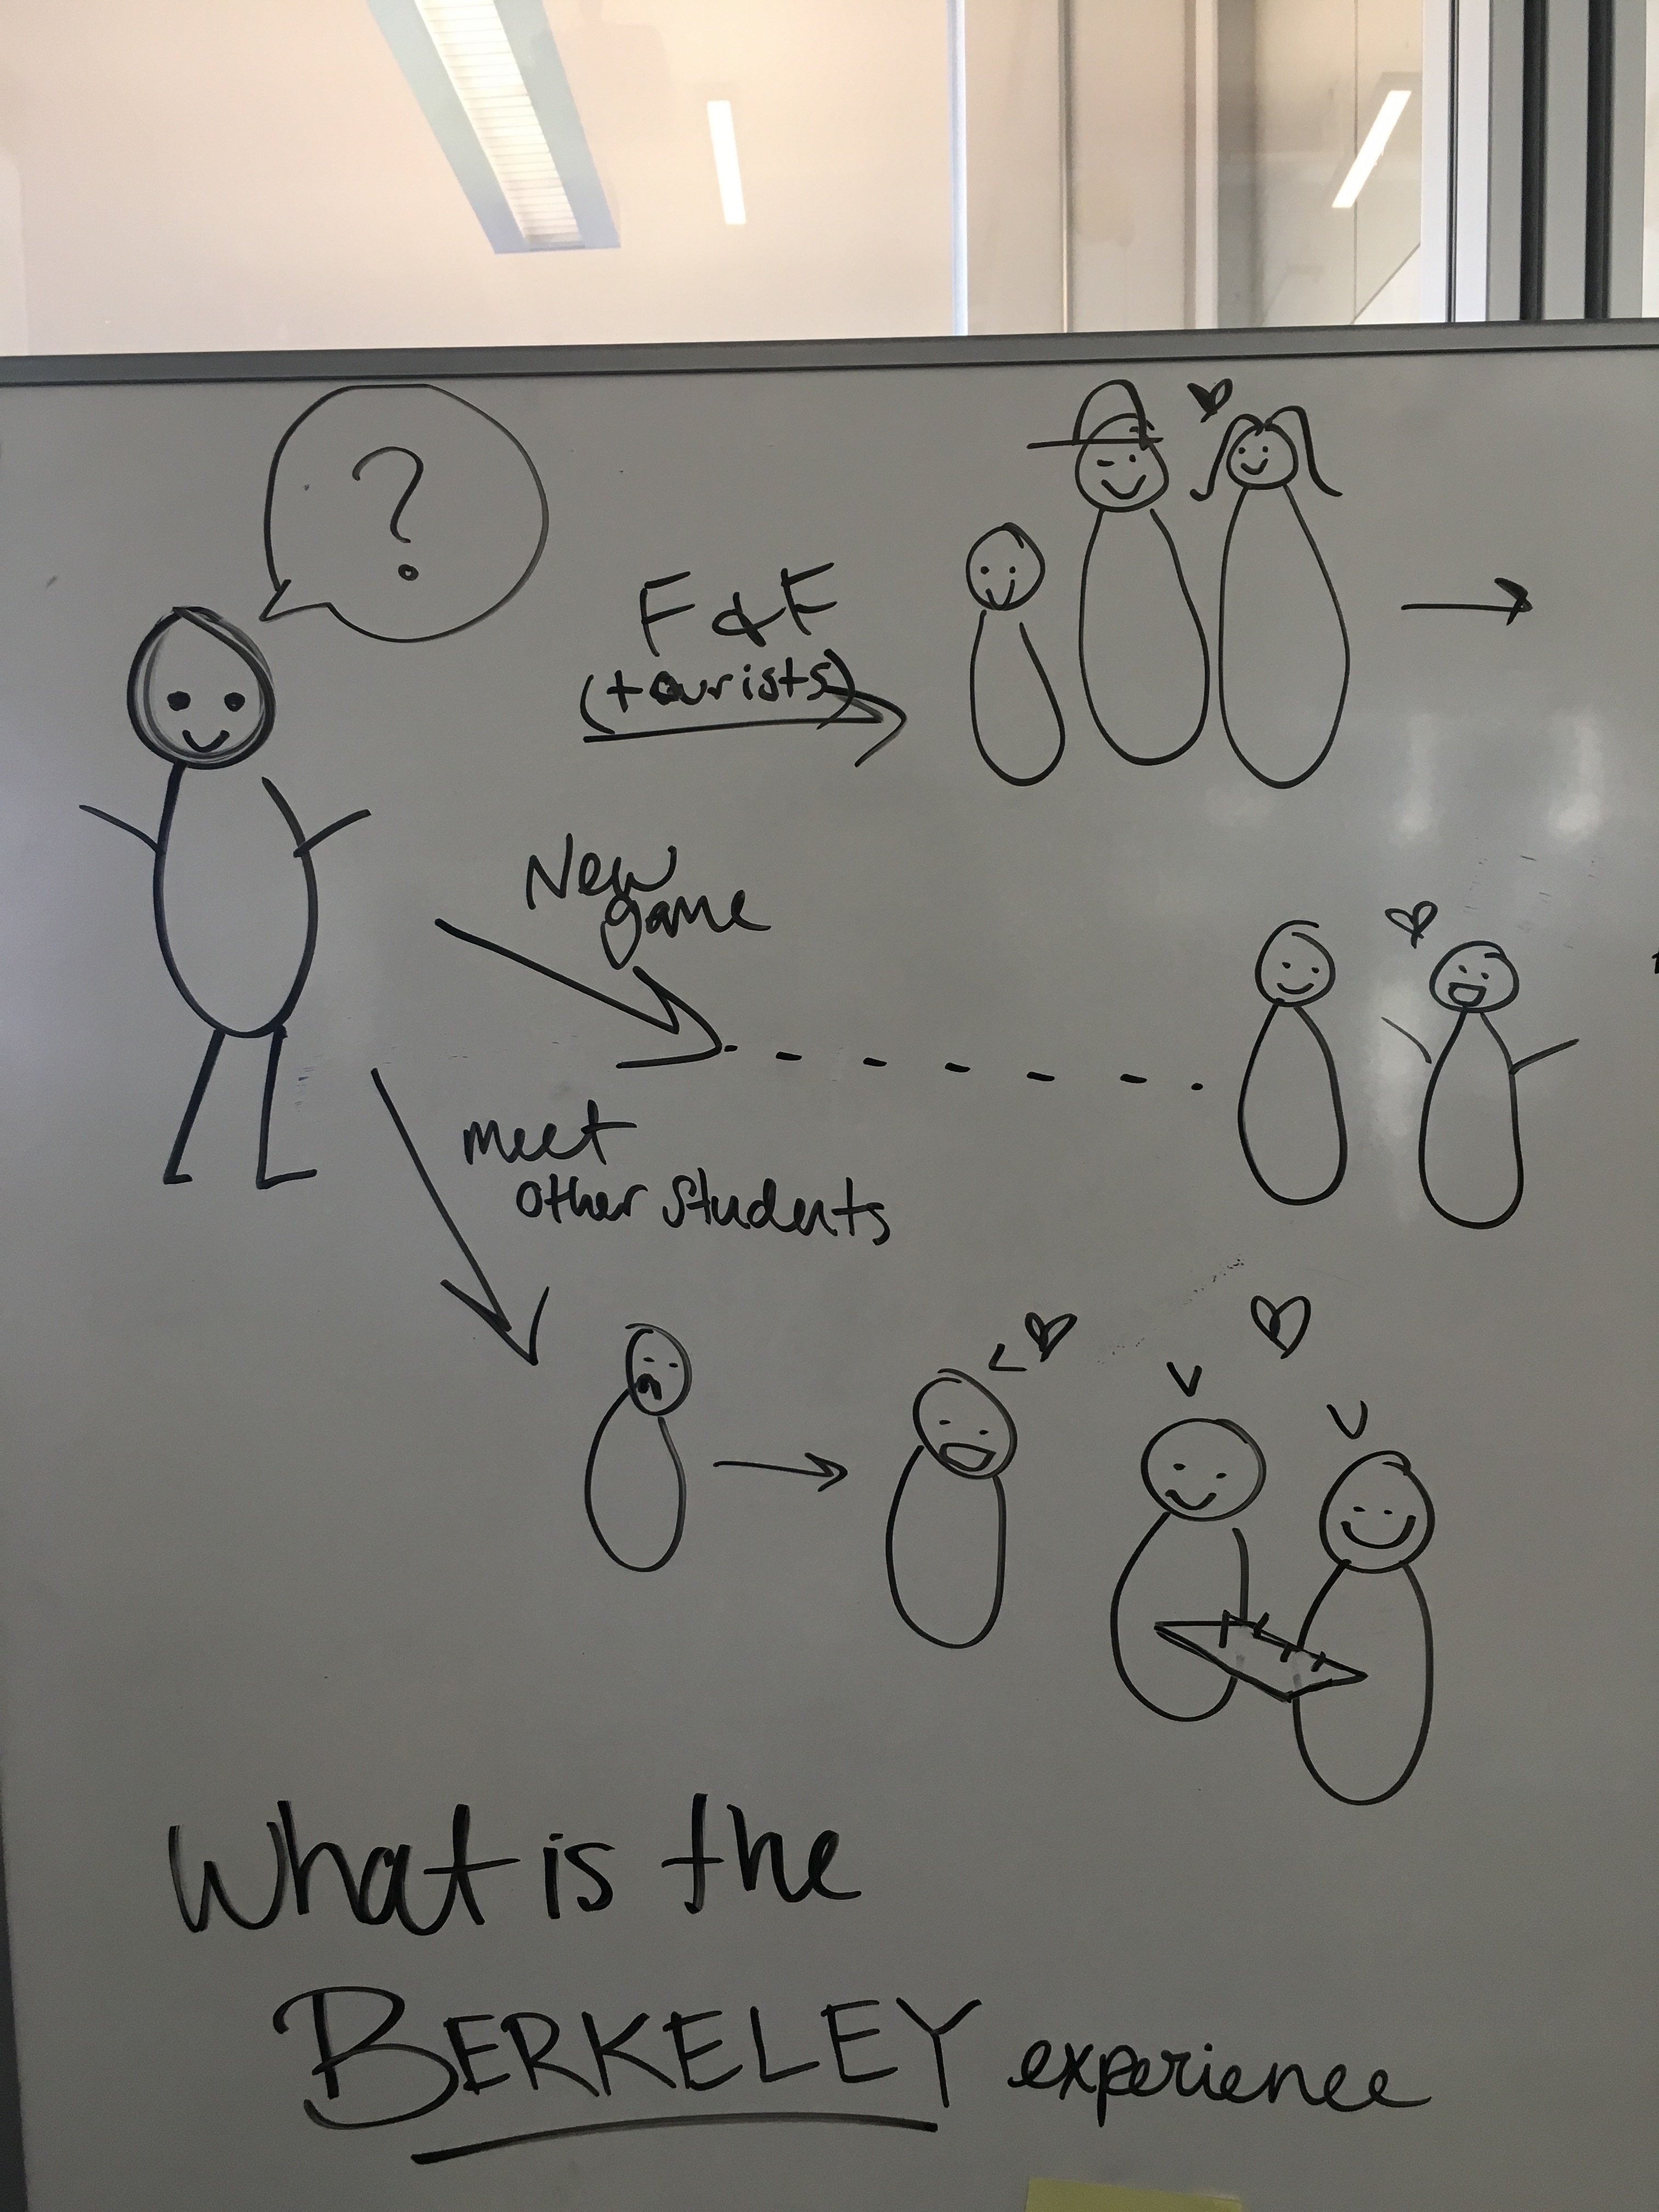 ?
F & F
(tourists)
New
game
meet
other students
What is the
BERKELEY experience